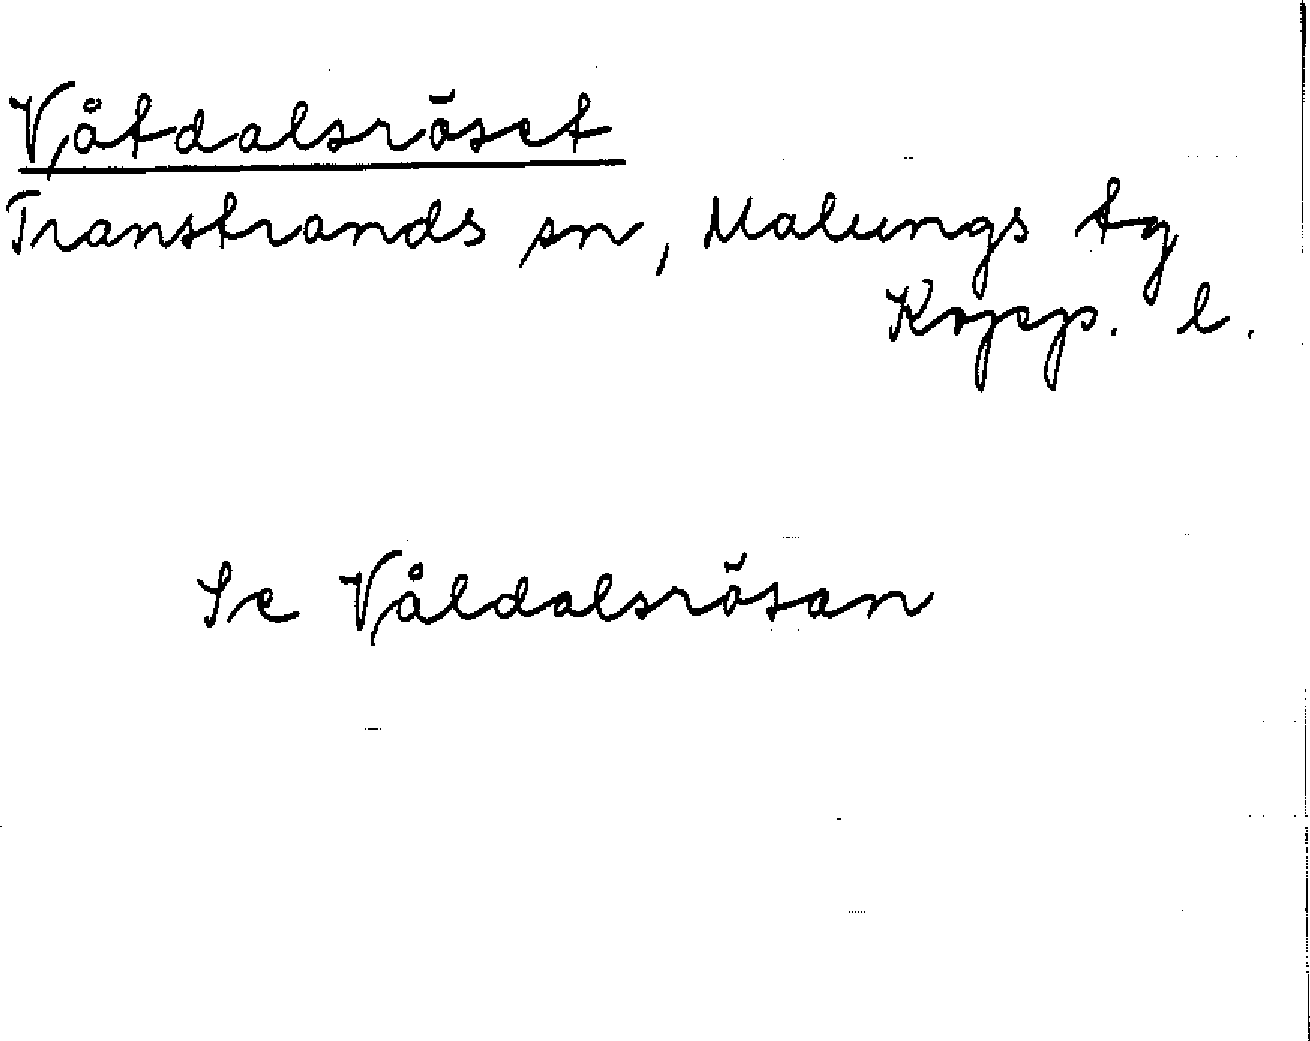 Våtdalsröset
Transtrands sn, Malungs tg
Kopp. l.
Se Våldalsrösan